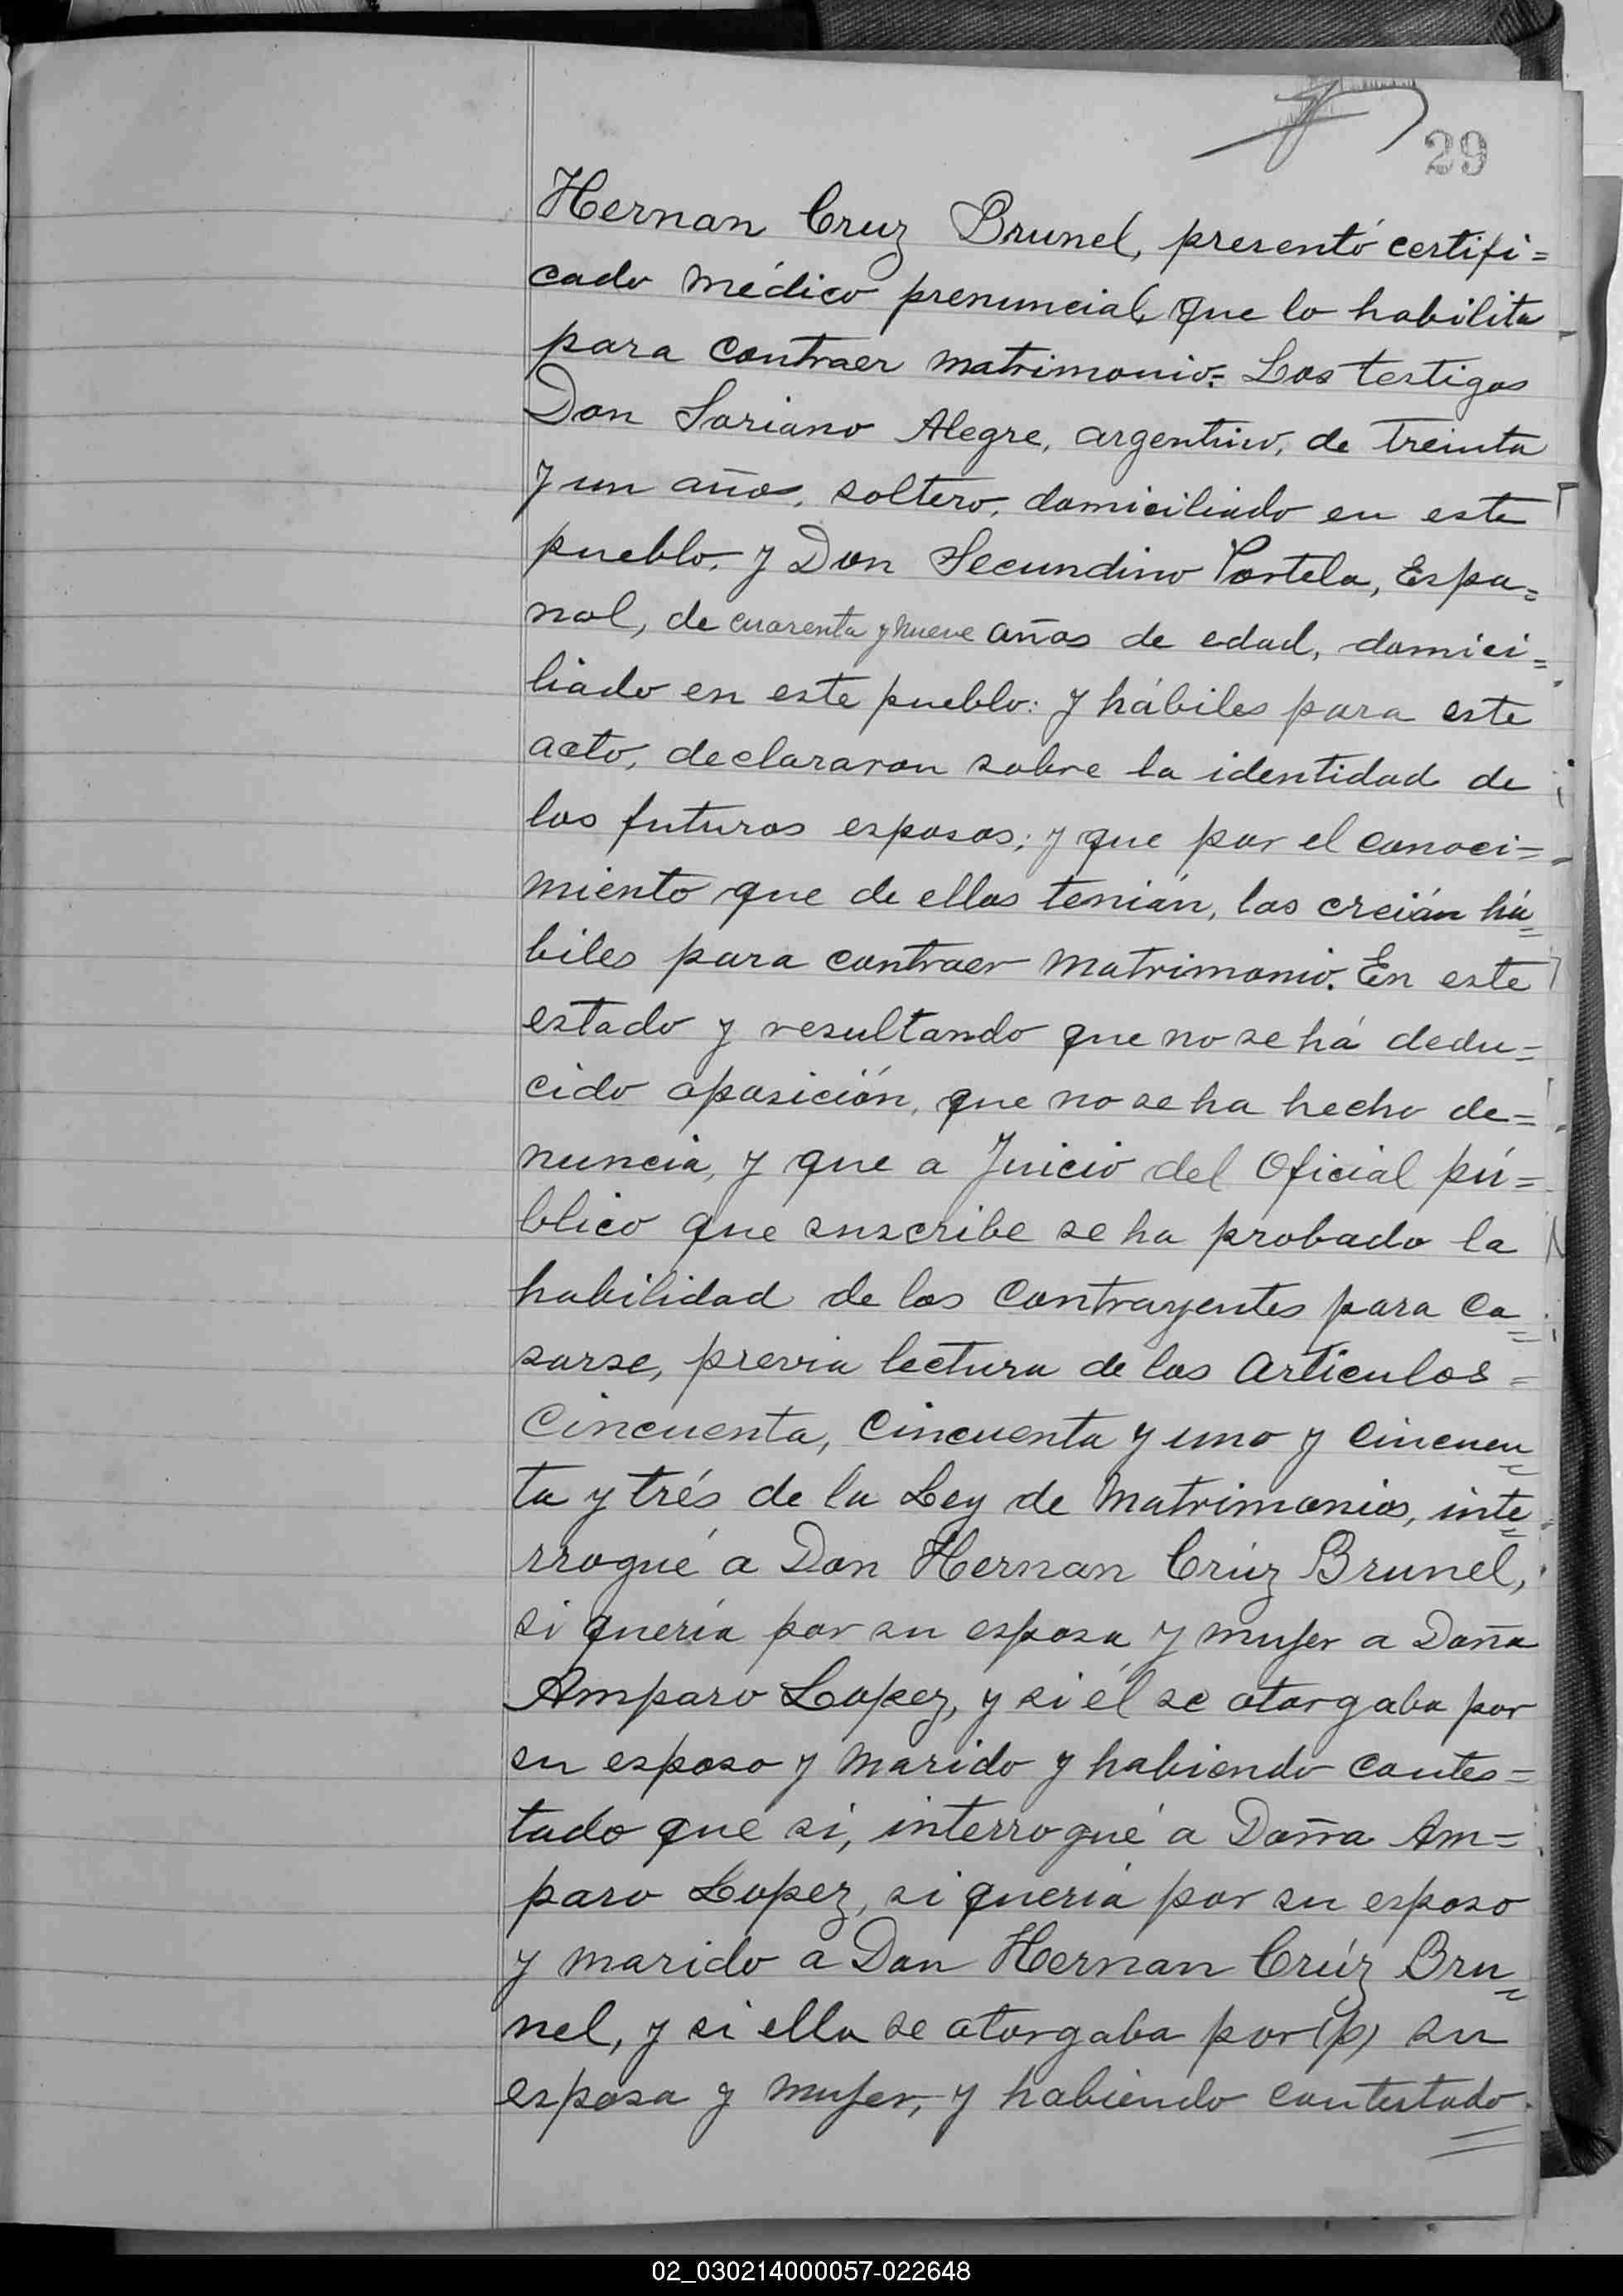 29
Hernan Cruz Brunel, presentó certifi=
cado médico prenuncial, que lo habilita
para contraer matrimonio.= Los testigos
Don Soriano Alegre, argentino, de treinta
y un años, soltero, domiciliado en este
pueblo, y Don Secundino Portela, Espa=
nol, de cuarenta y nueve años de edad, domici=
liado en este pueblo: y hábiles para este
acto, declararon sobre la identidad de
los futuros esposos; y que por el conoci=
miento que de ellos tenián, los creián há=
biles para contraer matrimonio. En este
estado y resultando que no se há dedu=
cido oposición, que no se ha hecho de=
nuncia, y que a Juicio del Oficial pú=
blico que suscribe se ha probado la
habilidad de los Contrayentes para Ca=
sarse, previa lectura de los Artículos =
Cincuenta, Cincuenta y uno y cincuen=
ta y trés de la Ley de Matrimonios, inte=
rrogué a Don Hernan Crúz Brunel,
si quería por su esposa y mujer a Doña
Amparo Lopez, y si él se otorgaba por
su esposo y marido y habiendo contes=
tado que si, interrogué a Doña Am=
paro Lopez, si quería por su esposo
y marido a Don Hernan Crúz Bru=
nel, y si ella se otorgaba por (p) su
esposa y mujer, y habiendo contestado
02_030214000057-022648